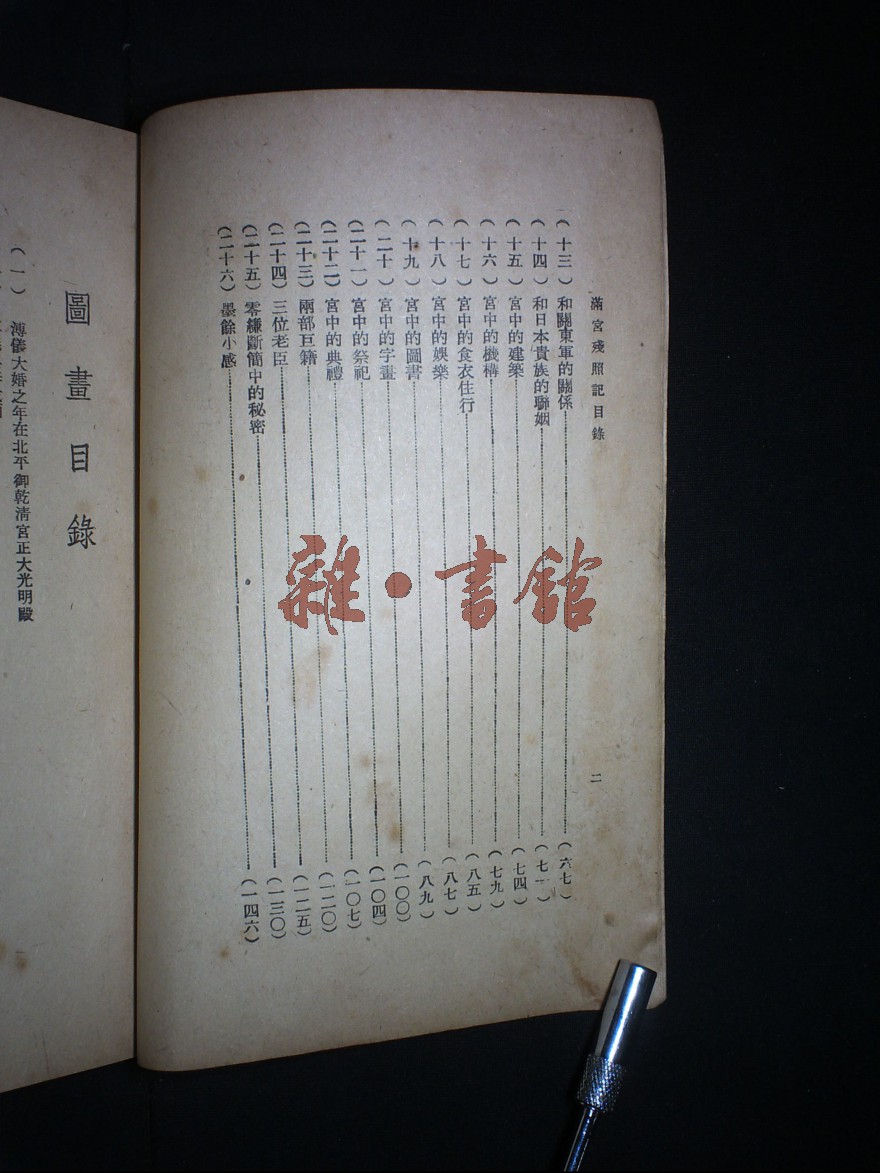 滿宮殘照記目錄 二
（十三）和關東軍的關係……（六七）
（十四）和日本貴族的聯姻……（七一）
（十五）宮中的建築……（七四）
（十六）宮中的機構……（七九）
（十七）宮中的食衣住行……（八五）
（十八）宮中的娛樂……（八七）
（十九）宮中的圖書……（八九）
（二十）宮中的字畫……（一〇〇）
（二十一）宮中的祭祀……（一〇四）
（二十二）宮中的典禮……（一〇七）
（二十三）兩部巨籍……（一二〇）
（二十四）三位老臣……（一二五）
（二十五）零縑斷簡中的秘密……（一三〇）
（二十六）墨餘小感……（一四六）
圖畫目錄
（一）溥儀大婚之年在北平御乾清宮正大光明殿
雜·書館